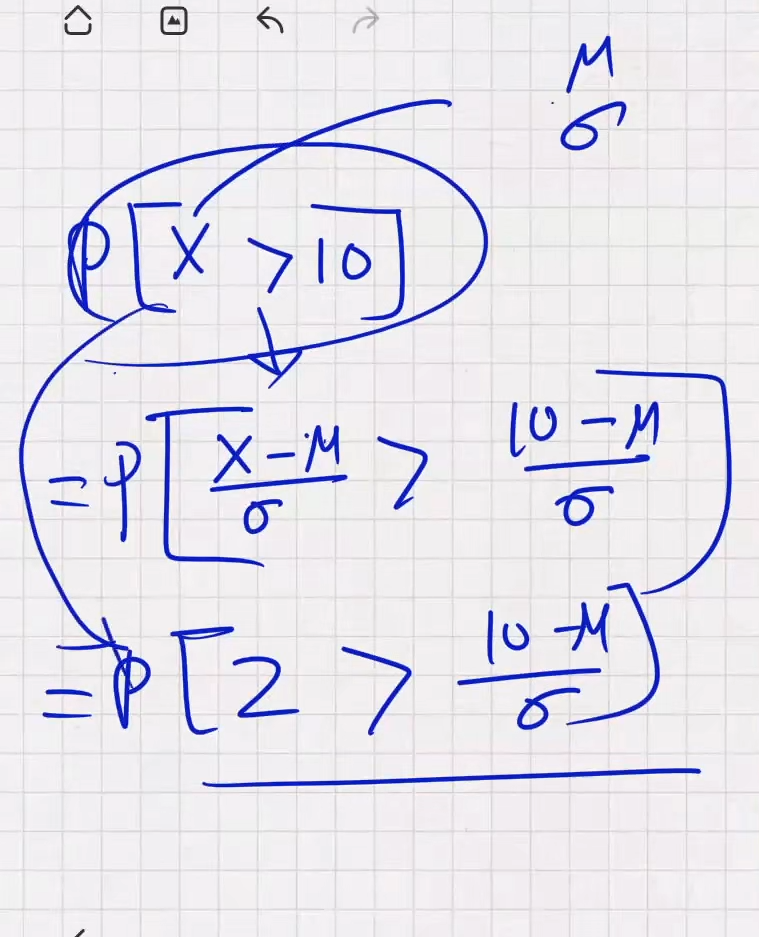 μ
σ
P[X > 10]
= P[(X - μ)/σ > (10 - μ)/σ]
= P[Z > (10 - μ)/σ]